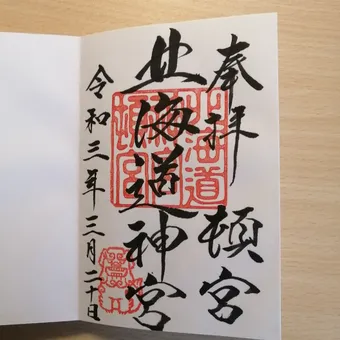 奉拝 頓宮
北海道神宮
令和三年三月二十日
北海道神宮頓宮